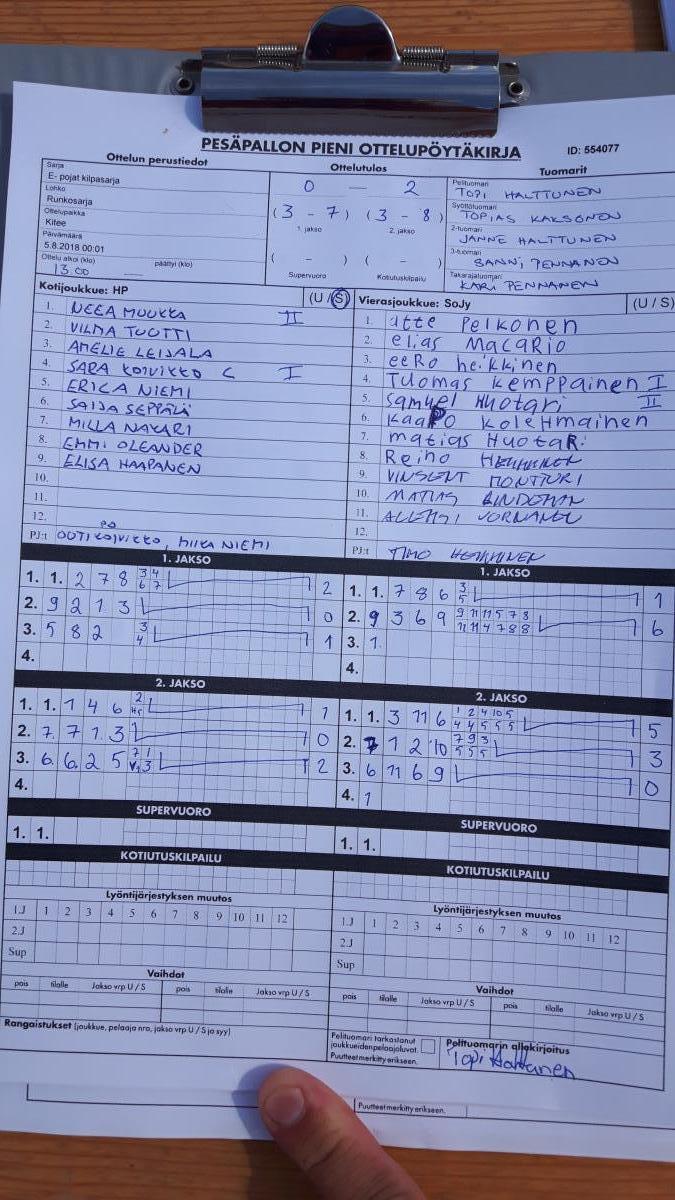 PESÄPALLON PIENI OTTELUPÖYTÄKIRJA
ID: 554077
Ottelun perustiedot
Sarja
E- pojat kilpasarja
Lohko
Runkosarja
Ottelupaikka
Kitee
Päivämäärä
5.8.2018 00:01
Ottelu alkoi (klo) päättyi (klo)
13.00
Ottelutulos
0 — 2
(3 - 7) (3 - 8)
1. jakso 2. jakso
( - ) ( - )
Supervuoro Kotiutuskilpailu
Tuomarit
Pelituomari
TOPI HALTTUNEN
Syöttötuomari
TOPIAS KAKSONEN
2-tuomari
JANNE HALTTUNEN
3-tuomari
SANNI PENNANEN
Takarajatuomari
KARI PENNANEN
Kotijoukkue: HP (U / S)
1. NEEA MUUKKA II
2. VILMA TUOTTI
3. AMELIE LEIJALA
4. SARA KOIVIKKO C I
5. ERICA NIEMI
6. SAIJA SEPPÄLÄ
7. MILLA NAKARI
8. EMMI OLEANDER
9. ELISA HAAPANEN
10.
11.
12.
PJ:t OUTI KOIVIKKO, MIKA NIEMI
Vierasjoukkue: SoJy (U / S)
1. atte Pelkonen
2. elias Macario
3. eeRo heikkinen
4. Tuomas kemppainen I
5. Samuel Huotari II
6. KaaPo KoleHmainen
7. matias HuotaRi
8. Reino
9. VINSENT MONTTURI
10. MATIAS
11.
12.
PJ:t TIMO
1. JAKSO
1. 1. 2 7 8 3 4 2
6 7
2. 9 2 1 3 0
3. 5 8 2 3 1
4
4.
1. JAKSO
1. 1. 7 8 6 3 1
5
2. 9 3 6 9 9 11 11 5 7 8 6
11 11 4 7 8 8
3. 1.
4.
2. JAKSO
1. 1. 1 4 6 2 1
2. 7. 7 1. 3 0
3. 6. 6. 2 5 7 1 2
4.
2. JAKSO
1. 1. 3 11 6 1 2 4 10 5 5
4 4 5 5 5
2. 7 1 2 10 7 9 3 3
5 5 5
3. 6 11 6 9 0
4. 1
SUPERVUORO
1. 1.
SUPERVUORO
1. 1.
KOTIUTUSKILPAILU
KOTIUTUSKILPAILU
Lyöntijärjestyksen muutos
1.J 1 2 3 4 5 6 7 8 9 10 11 12
2.J
Sup
Lyöntijärjestyksen muutos
1.J 1 2 3 4 5 6 7 8 9 10 11 12
2.J
Sup
Vaihdot
pois tilalle Jakso vrp U / S pois tilalle Jakso vrp U / S
Vaihdot
pois tilalle Jakso vrp U / S pois tilalle Jakso vrp U / S
Rangaistukset (joukkue, pelaaja nro, jakso vrp U / S ja syy)
Pelituomari tarkastanut
joukkueiden pelaajaluvat.
Puutteet merkitty erikseen.
Pelituomarin allekirjoitus
Topi Halttunen
Puutteet merkitty erikseen.